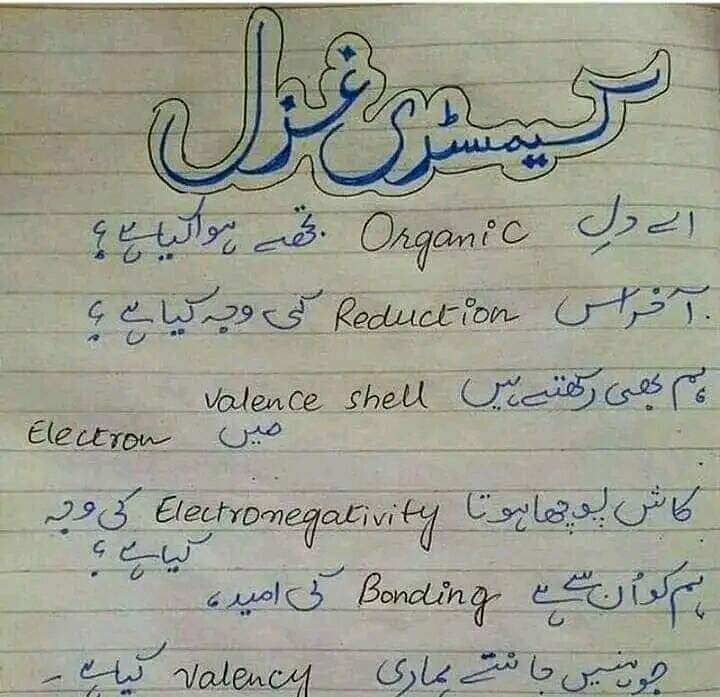 کیمسٹری غزل
اے دلِ Organic تجھے ہوا کیا ہے؟
آخر اس Reduction کی وجہ کیا ہے؟
ہم بھی رکھتے ہیں valence shell
میں Electron
کاش پوچھا ہوتا Electronegativity کی وجہ
کیا ہے؟
ہم کو اُن سے ہے Bonding کی امید،
جو نہیں جانتے ہماری valency کیا ہے۔